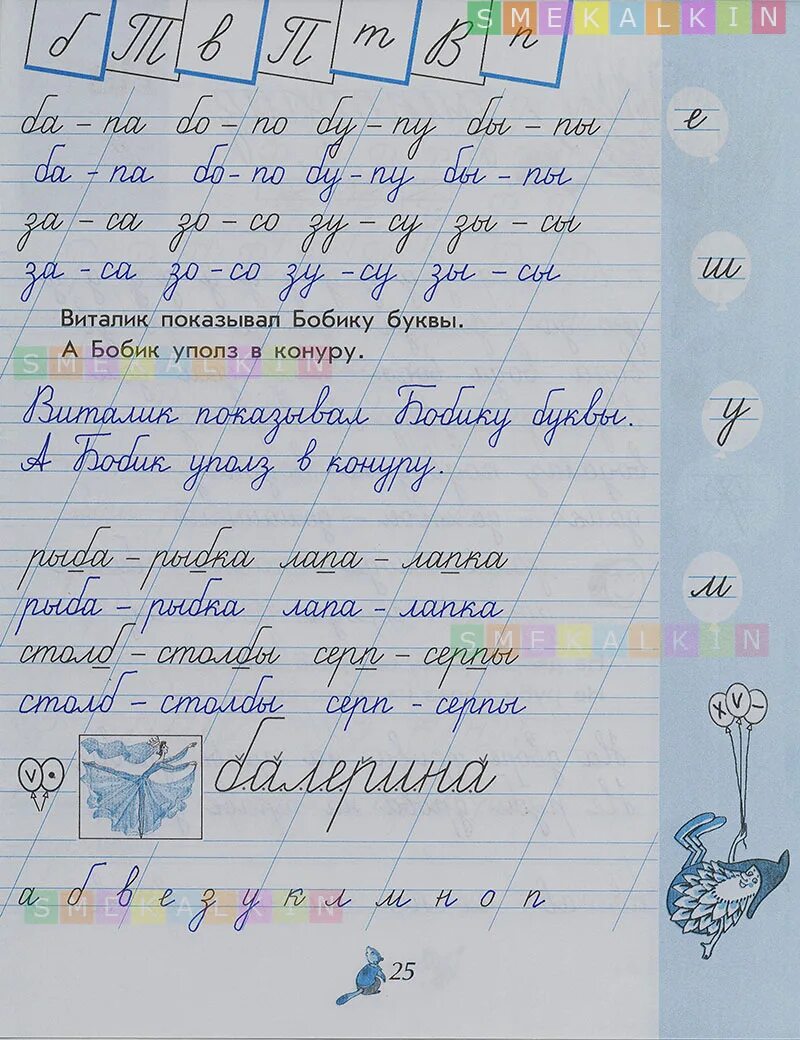 SMEKALKIN
б Т в П т В п
ба – па бо – по бу – пу бы – пы
е
ба – па бо – по бу – пу бы – пы
за – са зо – со зу – су зы – сы
за – са зо – со зу – су зы – сы
ш
Виталик показывал Бобику буквы.
А Бобик уполз в конуру.
SMEKALKIN
Виталик показывал Бобику буквы.
у
А Бобик уполз в конуру.
рыба – рыбка лапа – лапка
м
рыба – рыбка лапа – лапка
SMEKALKIN
столб – столбы серп – серпы
столб – столбы серп – серпы
X V –
V •
балерина
а б в е з у к л м н о п
SMEKALKIN
25